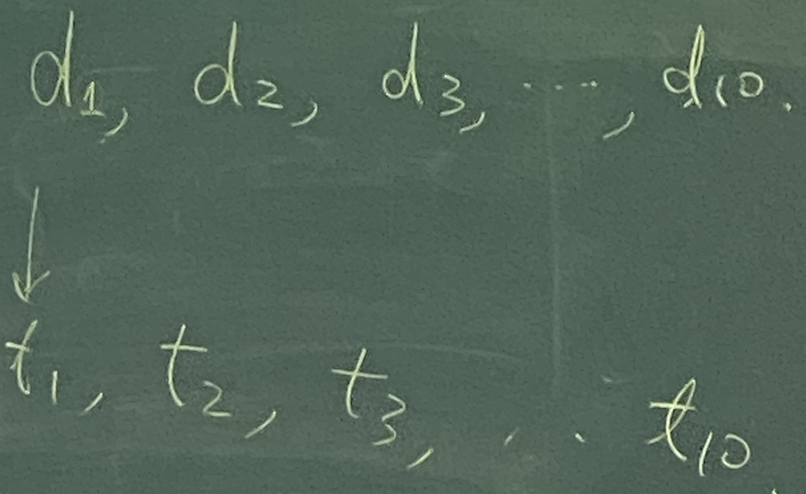 d₁, d₂, d₃, ..., d₁₀.
↓
t₁, t₂, t₃, ... t₁₀